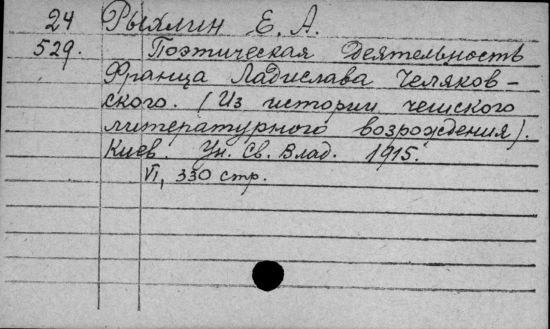 24 Рыхлин Е. А.
529. Поэтическая деятельность
Франца Ладислава Челяков-
ского. (Из истории чешского
литературного возрождения).
Киев. Ун. Св. Влад. 1915.
VI, 330 стр.